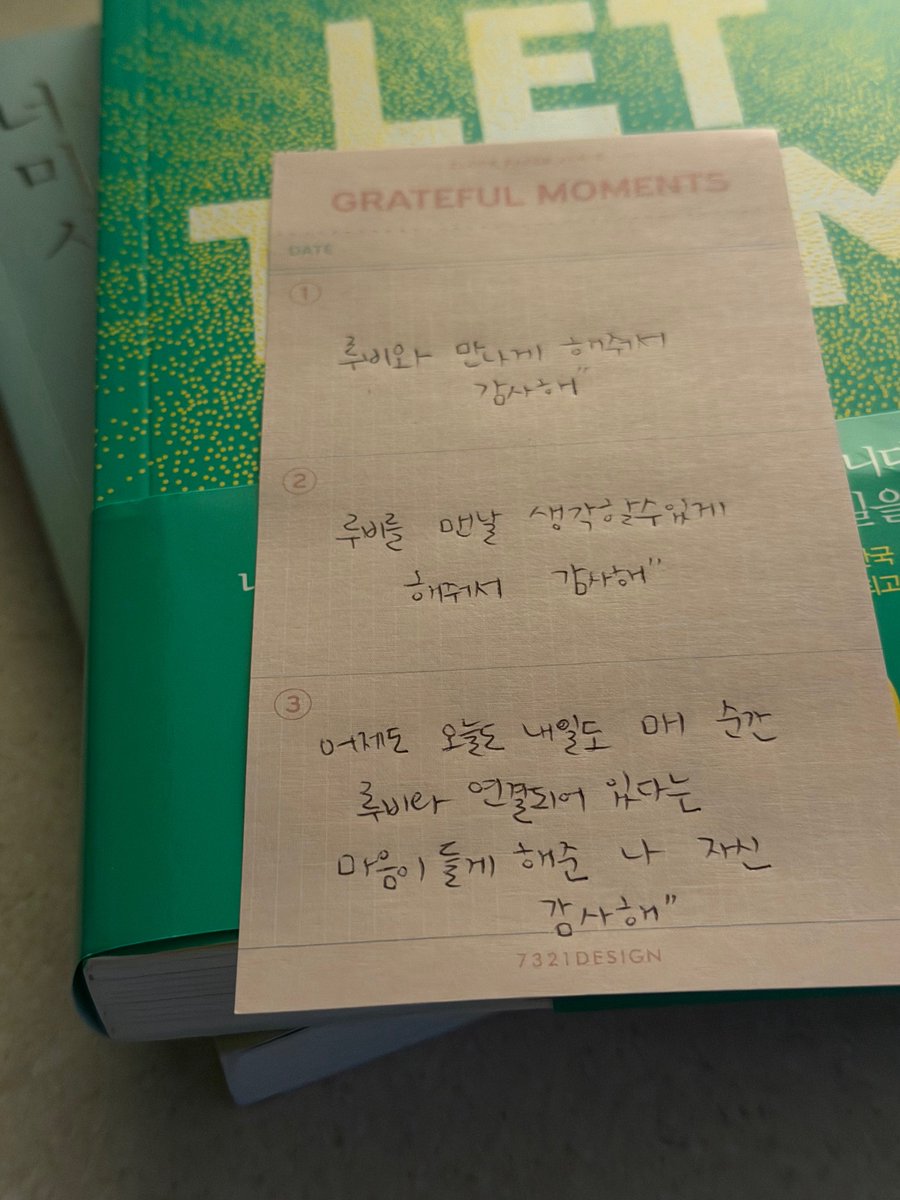 너
마
LET
GRATEFUL MOMENTS
DATE
1
루비와 만나게 해줘서
감사해"
2
루비를 맨날 생각할수있게
해줘서 감사해"
3
어제도 오늘도 내일도 매 순간
루비라 연결되어 있다는
마음이 들게 해준 나 자신
감사해"
7321DESIGN